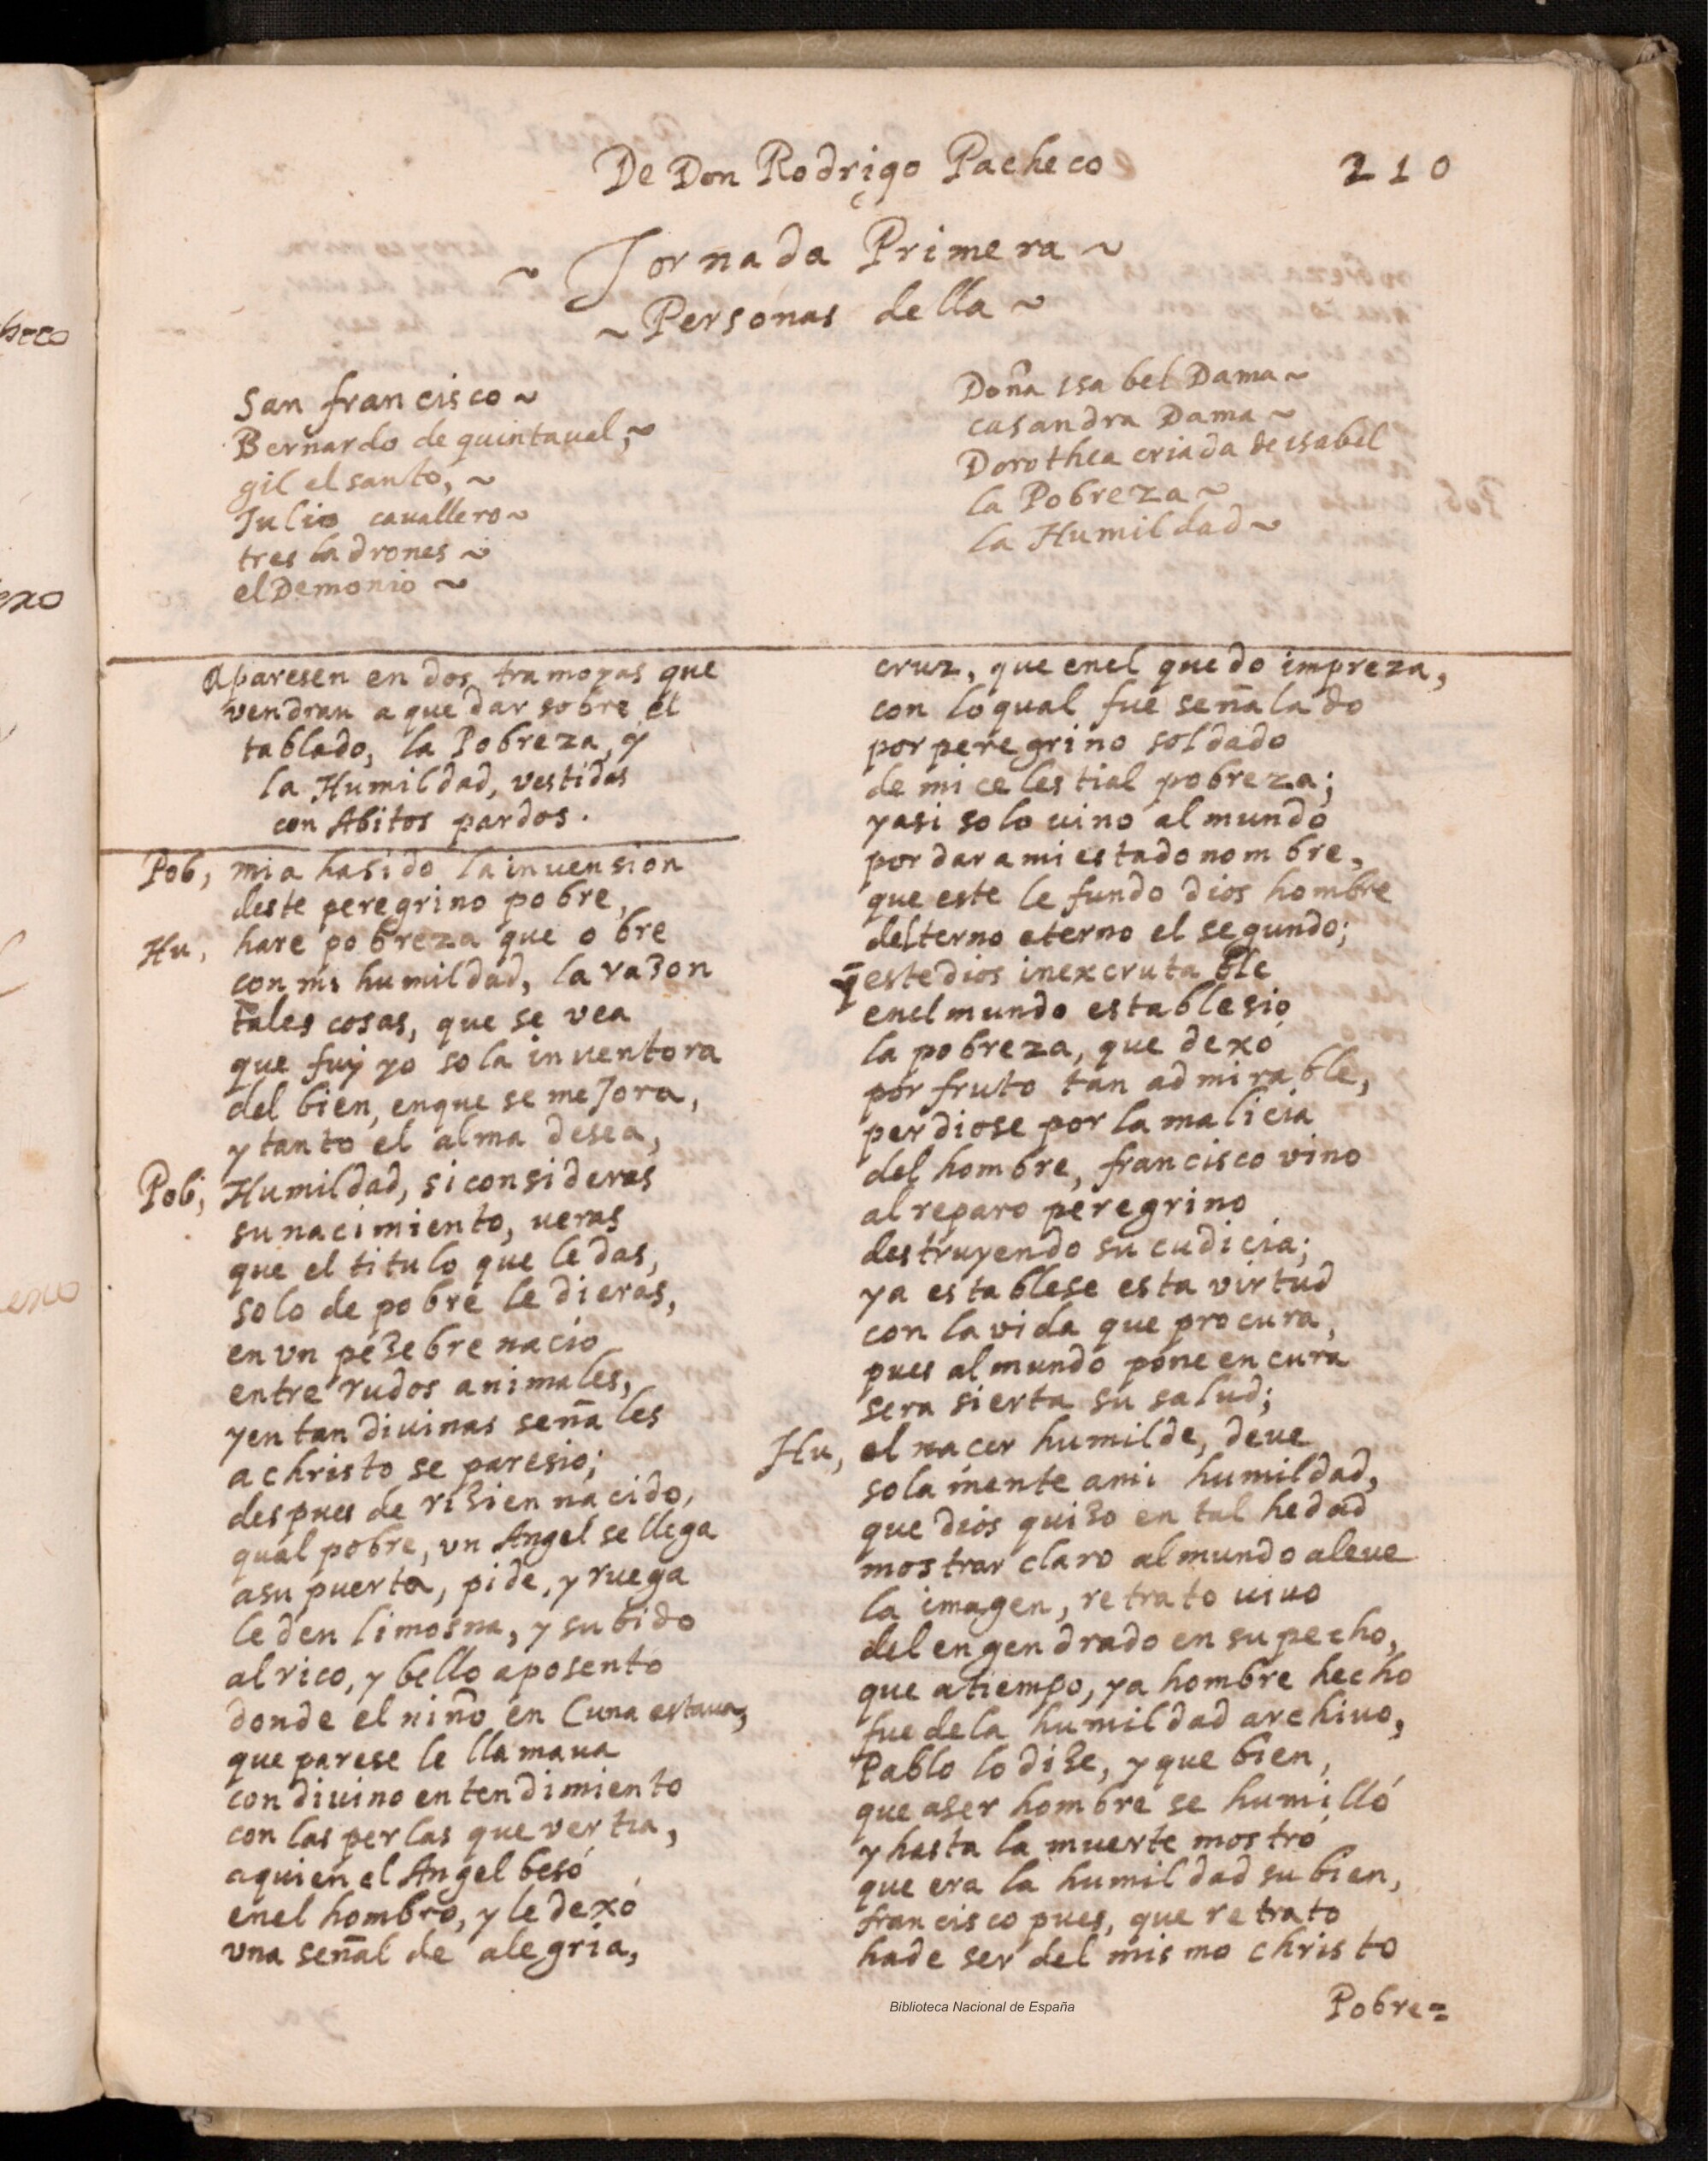 De Don Rodrigo Pacheco
210
~ Jornada Primera ~
~ Personas della ~
San francisco ~
Bernardo de quintaual, ~
gil el santo, ~
Julio cauallero ~
tres ladrones ~
el Demonio ~
Doña isabel Dama ~
casandra Dama ~
Dorothea criada de isabel
la Pobreza ~
la Humildad ~
Aparesen en dos tramoyas que
vendran a quedar sobre el
tablado, la Pobreza, y
la Humildad, vestidas
con Abitos pardos.
Pob, mia hasido la invension
deste peregrino pobre,
Hu, hare pobreza que obre
con mi humildad, la raзon
tales cosas, que se vea
que fuy yo sola inventora
del bien, enque se meJora,
y tanto el alma desea,
Pob, Humildad, si consideras
su nacimiento, ueras
que el titulo que le das,
solo de pobre le dieras,
en vn peзebre nacio
entre rudos animales,
y en tan diuinas señales
a christo se paresio;
despues de riзien nacido,
qual pobre, vn Angel se llega
asu puerta, pide, y ruega
le den limosna, y subido
al rico, y bello aposento
donde el niño en Cuna estaua,
que parese le llamaua
con diuino entendimiento
con las perlas que vertia,
aquien el Angel besó
enel hombro, y le dexó
vna señal de alegria,
cruz, que enel quedo impreza,
con loqual fue señalado
por peregrino soldado
de mi celestial pobreza;
y asi solo uino al mundo
por dar a mi estado nombre,
que este le fundo dios hombre
del terno eterno el segundo;
q̄ este dios inexcrutable
enel mundo establesio
la pobreza, que dexó
por fruto tan admirable,
perdiose por la malicia
del hombre, francisco vino
al reparo peregrino
destruyendo su cudicia;
ya establese esta virtud
con la vida que procura,
pues al mundo pone en cura
sera sierta su salud;
Hu, el nacer humilde, deue
solamente ami humildad,
que dios quiзo en tal hedad
mostrar claro al mundo aleue
la imagen, retrato uiuo
del engendrado en su pecho,
que atiempo, ya hombre hecho
fue de la humildad archiuo,
Pablo lo diзe, y que bien,
que aser hombre se humilló
y hasta la muerte mostró
que era la humildad su bien,
francisco pues, que retrato
hade ser del mismo christo
Pobre=
Biblioteca Nacional de España